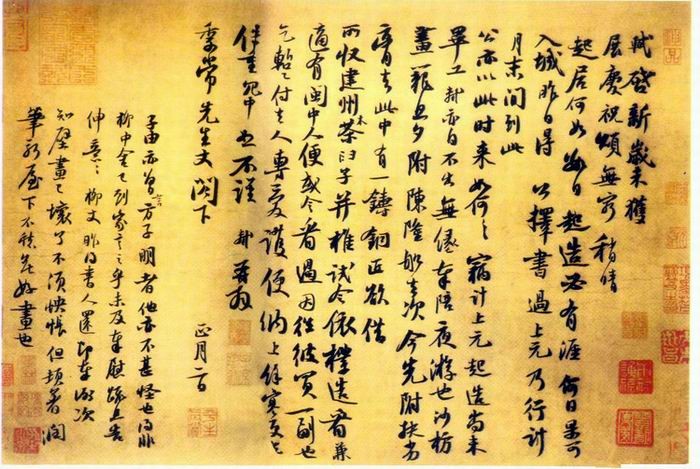 軾啓新歲未獲
展慶祝頌無窮稍晴
起居何如數日起造必有涯何日果可
入城昨日得公擇書過上元乃行計
月末間到此
公亦以此時來如何々竊計上元起造尚未
畢工軾亦自不出無緣奉陪夜游也沙枋
畫籠旦夕附陳隆船去次今先附扶劣
膏去此中有一鑄銅匠欲借
所收建州木茶臼子并椎試令依樣造看兼
適有閩中人便或令看過因往彼買一副也
乞暫付去人專愛護便納上餘寒更乞
保重冗中恕不謹 軾再拜
季常先生丈閤下
正月二日
子由亦曾言方子明者他亦不甚怪也得非
柳中舍已到家言之乎未及奉慰疏且告
伸意々柳丈昨得書人還即奉謝次
知壁畫已壞了不須怏悵但頓著潤
筆新屋下不愁無好畫也